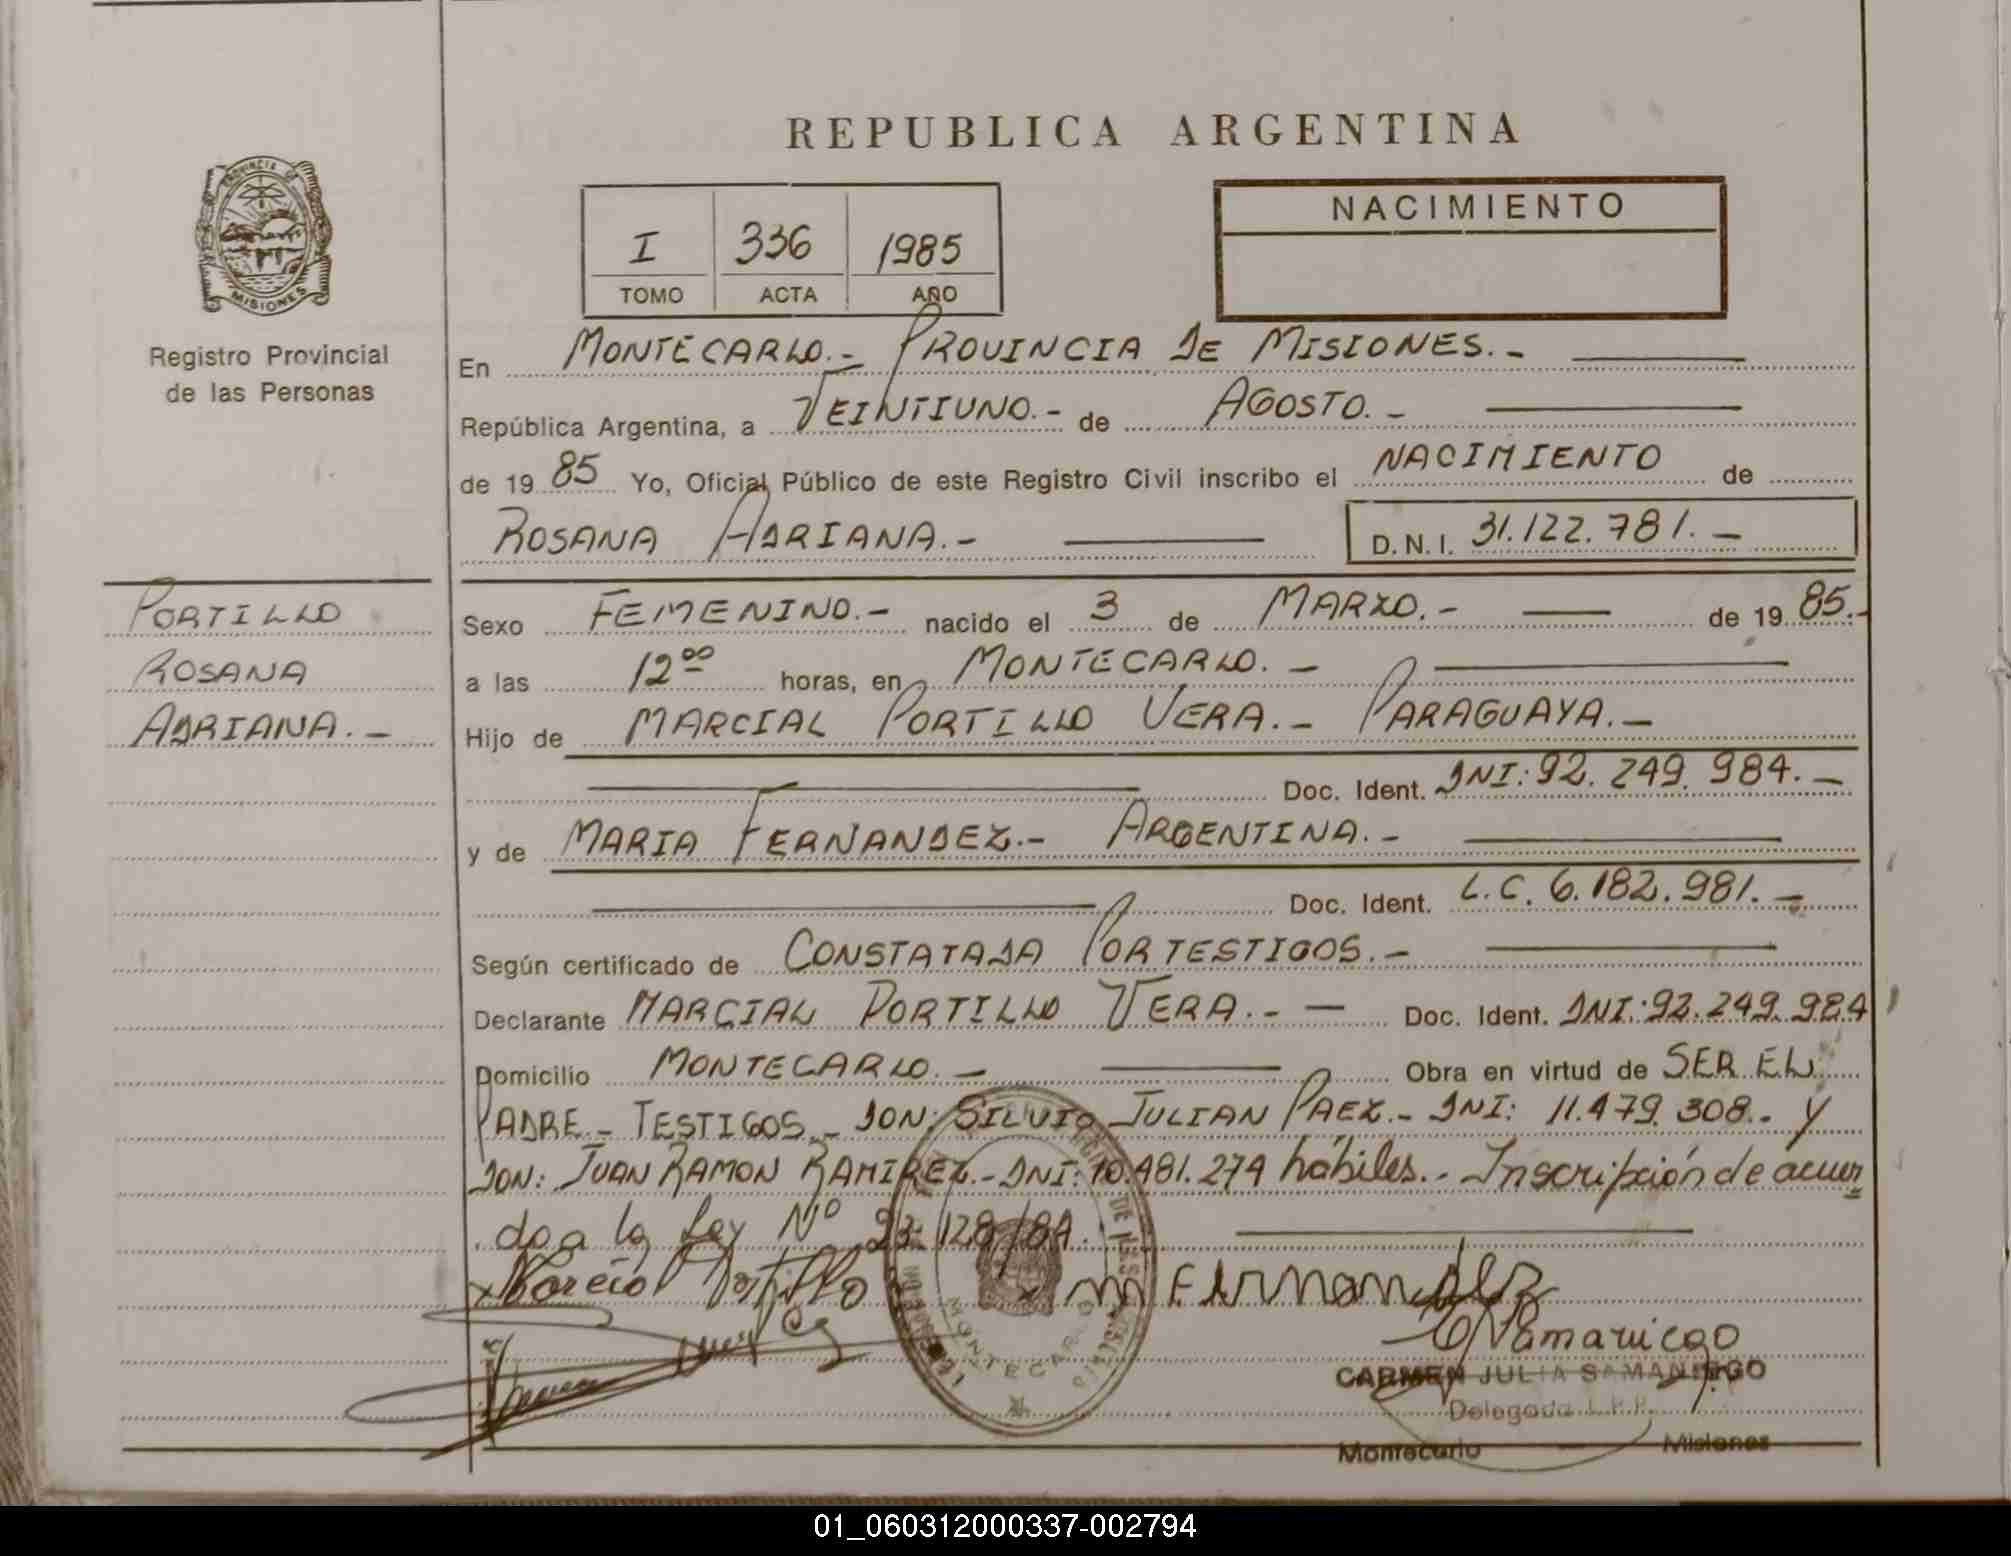 REPUBLICA ARGENTINA
PROVINCIA DE
MISIONES
Registro Provincial
de las Personas
I 336 1985
TOMO ACTA AÑO
NACIMIENTO
En MONTECARLO.- PROVINCIA DE MISIONES.-
República Argentina, a VEINTIUNO.- de AGOSTO.-
de 1985 Yo, Oficial Público de este Registro Civil inscribo el NACIMIENTO de
ROSANA ADRIANA.- D.N.I. 31.122.781.-
PORTILLO
ROSANA
ADRIANA.-
Sexo FEMENINO.- nacido el 3 de MARZO.- de 1985.-
a las 12⁰⁰ horas, en MONTECARLO.-
Hijo de MARCIAL PORTILLO VERA.- PARAGUAYA.-
Doc. Ident. DNI: 92.249.984.-
y de MARIA FERNANDEZ.- ARGENTINA.-
Doc. Ident. L.C. 6.182.981.-
Según certificado de CONSTATADA POR TESTIGOS.-
Declarante MARCIAL PORTILLO VERA.- Doc. Ident. DNI: 92.249.984
Domicilio MONTECARLO.- Obra en virtud de SER EL
PADRE.- TESTIGOS.- DON: SILVIO JULIAN PAEZ.- DNI: 11.479.308.- Y
DON: JUAN RAMON RAMIREZ.- DNI: 10.481.274 hábiles.- Inscripción de acuer
do a la Ley Nº 23.128/84.-
x Marcial Portillo x M FErnandez
MONTECARLO
CARMEN JULIA SAMANIEGO
Delegada
Montecarlo Misiones
01_060312000337-002794